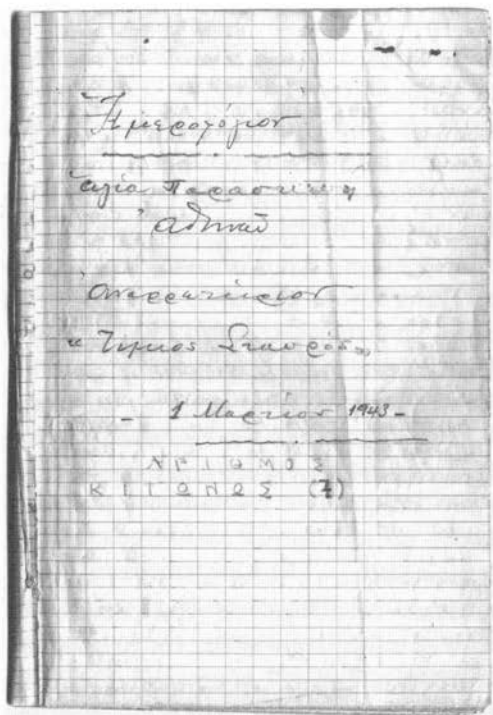 Ἡμερολόγιον
Ἁγία Παρασκευή
Ἀθηνῶν
Ἀναρρωτήριον
« Τίμιος Σταυρός »
- 1 Μαρτίου 1943 -
ΑΡΙΘΜΟΣ
(7)